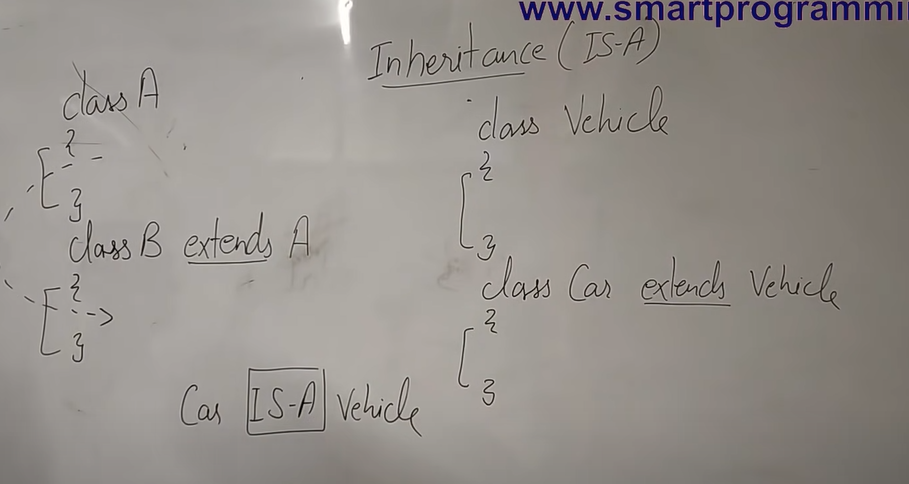 www.smartprogrammi
Inheritance (IS-A)
class A
{
}
class B extends A
{
}
class Vehicle
{
}
class Car extends Vehicle
{
}
Car IS-A Vehicle